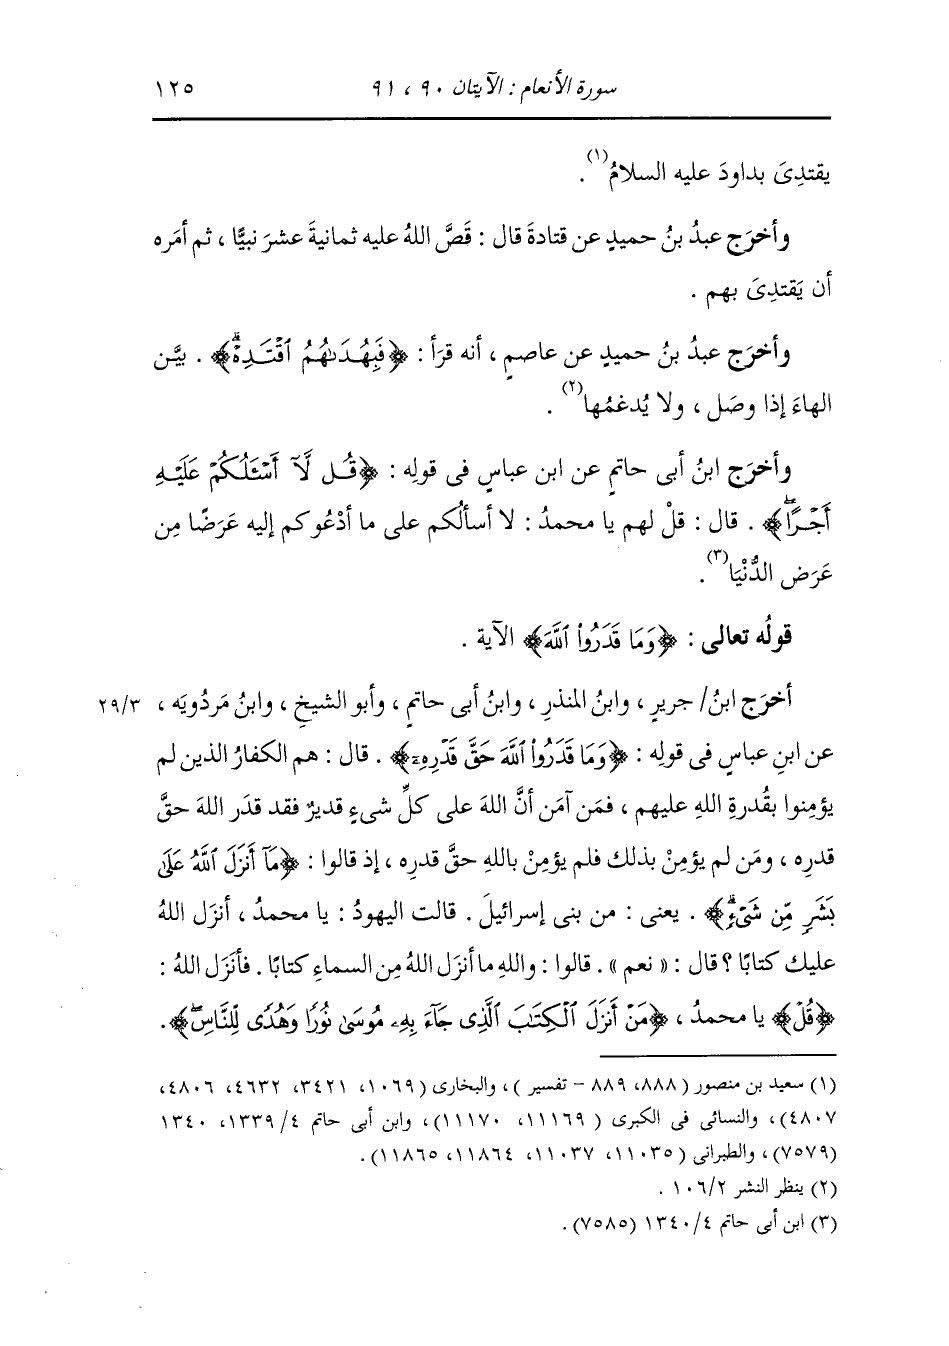 سورة الأنعام : الآيتان ٩٠ ، ٩١ ١٢٥
يقتدِىَ بداودَ عليه السلامُ(١) .
وأخرَج عبدُ بنُ حميدٍ عن قتادةَ قال : قَصَّ اللهُ عليه ثمانيةَ عشرَ نبيًّا ، ثم أمَره
أن يَقتدِىَ بهم .
وأخرَج عبدُ بنُ حميدٍ عن عاصمٍ ، أنه قرَأ : ﴿فَبِهُدَىٰهُمُ ٱقْتَدِهْۗ﴾ . بيَّن
الهاءَ إذا وصَل ، ولا يُدغمُها(٢) .
وأخرَج ابنُ أبى حاتمٍ عن ابن عباسٍ فى قولِه : ﴿قُل لَّآ أَسْـَٔلُكُمْ عَلَيْهِ
أَجْرًاۖ﴾ . قال : قلْ لهم يا محمدُ : لا أسألُكم على ما أدْعُوكم إليه عَرَضًا مِن
عَرَضِ الدُّنْيَا(٣) .
قولُه تعالى : ﴿وَمَا قَدَرُوا۟ ٱللَّهَ﴾ الآية .
أخرَج ابنُ/ جريرٍ ، وابنُ المنذرِ ، وابنُ أبى حاتمٍ ، وأبو الشيخِ ، وابنُ مَردُويَه ، ٢٩/٣
عن ابنِ عباسٍ فى قولِه : ﴿وَمَا قَدَرُوا۟ ٱللَّهَ حَقَّ قَدْرِهِۦٓ﴾ . قال : هم الكفارُ الذين لم
يؤمِنوا بقُدرةِ اللهِ عليهم ، فمَن آمَن أنَّ اللهَ على كلِّ شىءٍ قديرٌ فقد قدَر اللهَ حقَّ
قدرِه ، ومَن لم يؤمِنْ بذلك فلم يؤمِنْ باللهِ حقَّ قدرِه ، إذ قالوا : ﴿مَآ أَنزَلَ ٱللَّهُ عَلَىٰ
بَشَرٍ مِّن شَىْءٍۗ﴾ . يعنى : من بنى إسرائيلَ . قالت اليهودُ : يا محمدُ ، أنزَل اللهُ
عليك كتابًا ؟ قال : « نعم » . قالوا : واللهِ ما أنزَل اللهُ مِن السماءِ كتابًا . فأنَزَل اللهُ :
﴿قُلْ﴾ يا محمدُ ، ﴿مَنْ أَنزَلَ ٱلْكِتَٰبَ ٱلَّذِى جَآءَ بِهِۦ مُوسَىٰ نُورًا وَهُدًى لِّلنَّاسِۖ﴾ .
(١) سعيد بن منصور (٨٨٨، ٨٨٩ – تفسير ) ، والبخارى (١٠٦٩، ٣٤٢١، ٤٦٣٢، ٤٨٠٦،
٤٨٠٧) ، والنسائى فى الكبرى (١١١٦٩، ١١١٧٠) ، وابن أبى حاتم ٤/ ١٣٣٩، ١٣٤٠
(٧٥٧٩) ، والطبرانى (١١٠٣٥، ١١٠٣٧، ١١٨٦٤، ١١٨٦٥) .
(٢) ينظر النشر ١٠٦/٢ .
(٣) ابن أبى حاتم ٤/ ١٣٤٠ (٧٥٨٥) .